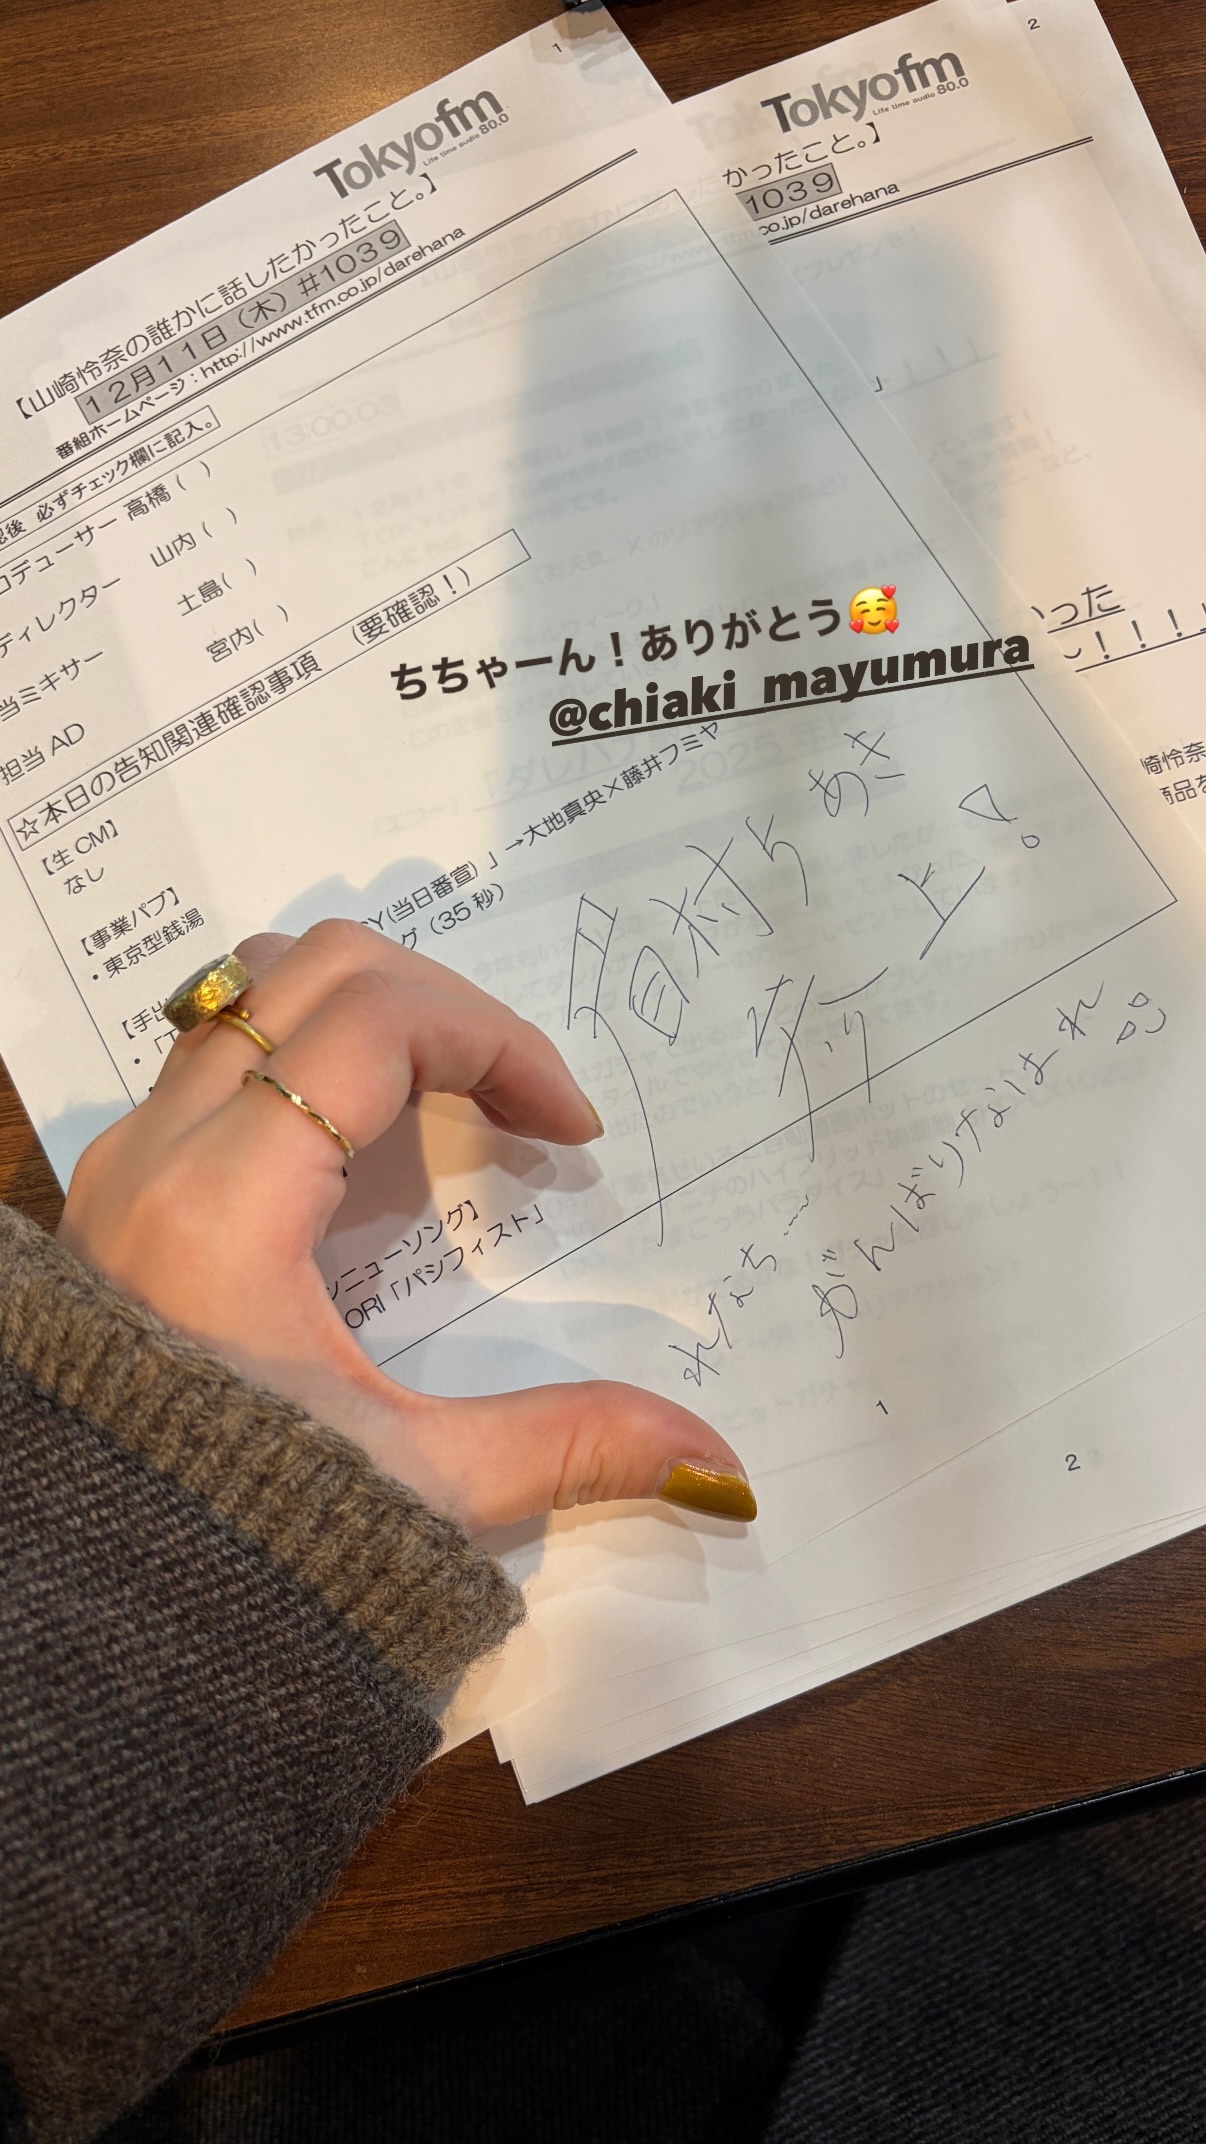 1
Tokyofm
Life time audio 80.0
【山崎怜奈の誰かに話したかったこと。】
12月11日（木）#1039
番組ホームページ：http://www.tfm.co.jp/darehana
認後 必ずチェック欄に記入。
ロデューサー 高橋（ ）
ディレクター 山内（ ）
当ミキサー 土島（ ）
担当AD 宮内（ ）
☆本日の告知関連確認事項 （要確認！）
【生CM】
なし
【事業パブ】
・東京型銭湯
【手出
・「T
Y(当日番宣)」→大地真央×藤井フミヤ
グ（35秒）
ンニューソング】
ORI「パシフィスト」
1
2
Tokyofm
Life time audio 80.0
かったこと。】
1039
co.jp/darehana
」
った
！！！！
崎怜奈
商品を
2
ちちゃーん！ありがとう🥰
@chiaki_mayumura
眉村ちあき
参上！
れなち
がんばりなはれ